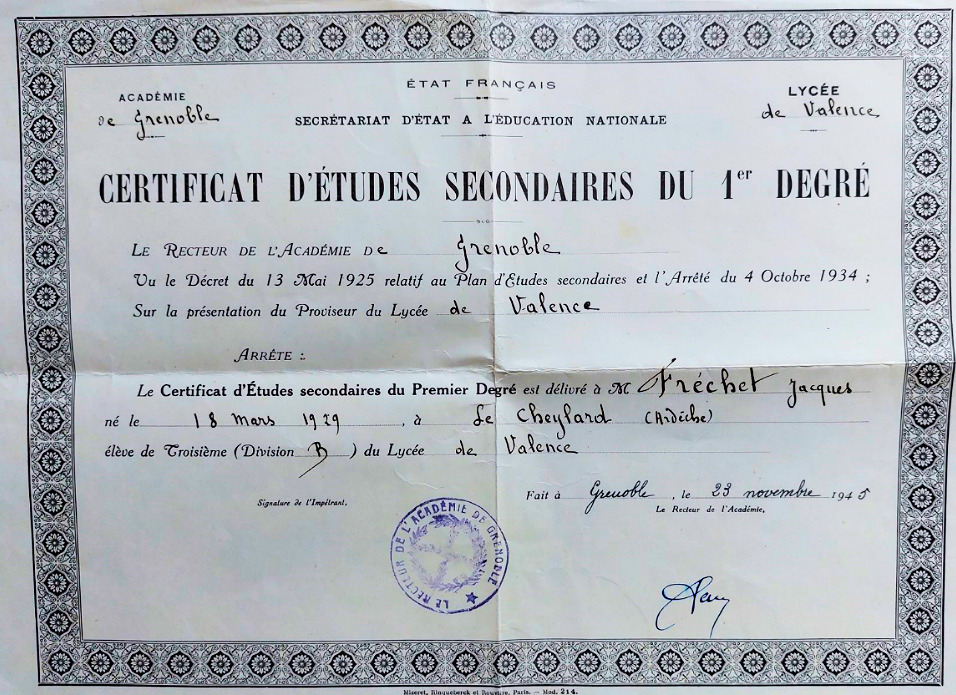 ÉTAT FRANÇAIS
ACADÉMIE
de Grenoble
LYCÉE
de Valence
SECRÉTARIAT D'ÉTAT A L'ÉDUCATION NATIONALE
CERTIFICAT D'ÉTUDES SECONDAIRES DU 1er DEGRÉ
LE RECTEUR DE L'ACADÉMIE De Grenoble
Vu le Décret du 13 Mai 1925 relatif au Plan d'Etudes secondaires et l'Arrêté du 4 Octobre 1934 ;
Sur la présentation du Proviseur du Lycée de Valence
ARRÊTE :
Le Certificat d'Études secondaires du Premier Degré est délivré à M Fréchet Jacques
né le 18 mars 1929, à Le Cheylard (Ardèche)
élève de Troisième (Division B) du Lycée de Valence
Fait à Grenoble, le 23 novembre 1945
Signature de l'Impétrant.
Le Recteur de l'Académie,
LE RECTEUR DE L'ACADÉMIE DE GRENOBLE
Paris. — Mod. 214.